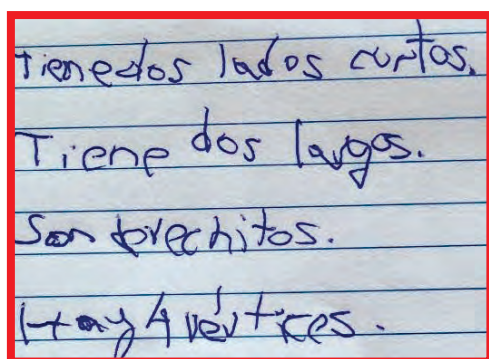 Tiene dos lados cortos.
Tiene dos largos.
Son drechitos.
Hay 4 vértices.